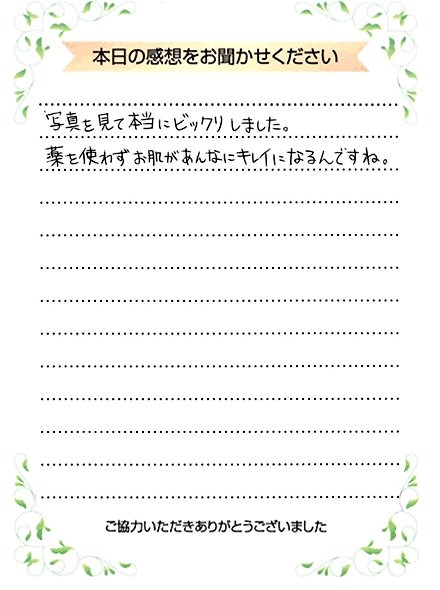 本日の感想をお聞かせください
写真を見て本当にビックリしました。
薬を使わずお肌があんなにキレイになるんですね。
ご協力いただきありがとうございました